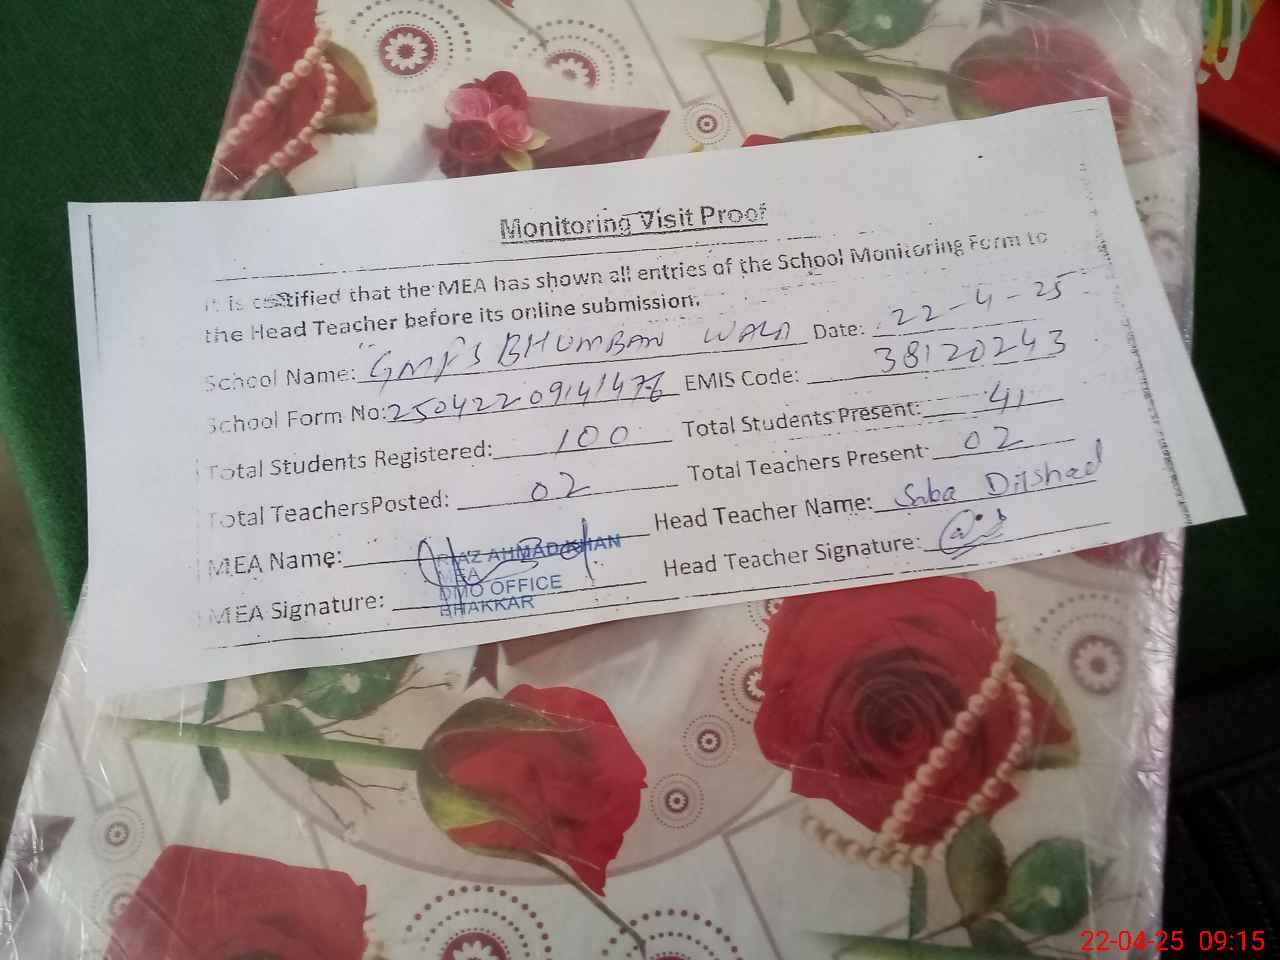 Monitoring Visit Proof
It is certified that the MEA has shown all entries of the School Monitoring Form to
the Head Teacher before its online submission.
School Name: GMPS BHUMBAN WALA Date: 22-4-25
School Form No: 25042209141476 EMIS Code: 38120243
Total Students Registered: 100 Total Students Present: 41
Total TeachersPosted: 02 Total Teachers Present: 02
MEA Name: RIAZ AHMAD KHAN Head Teacher Name: Saba Dilshad
MEA
MEA Signature: Head Teacher Signature:
DMO OFFICE
BHAKKAR
22-04-25 09:15